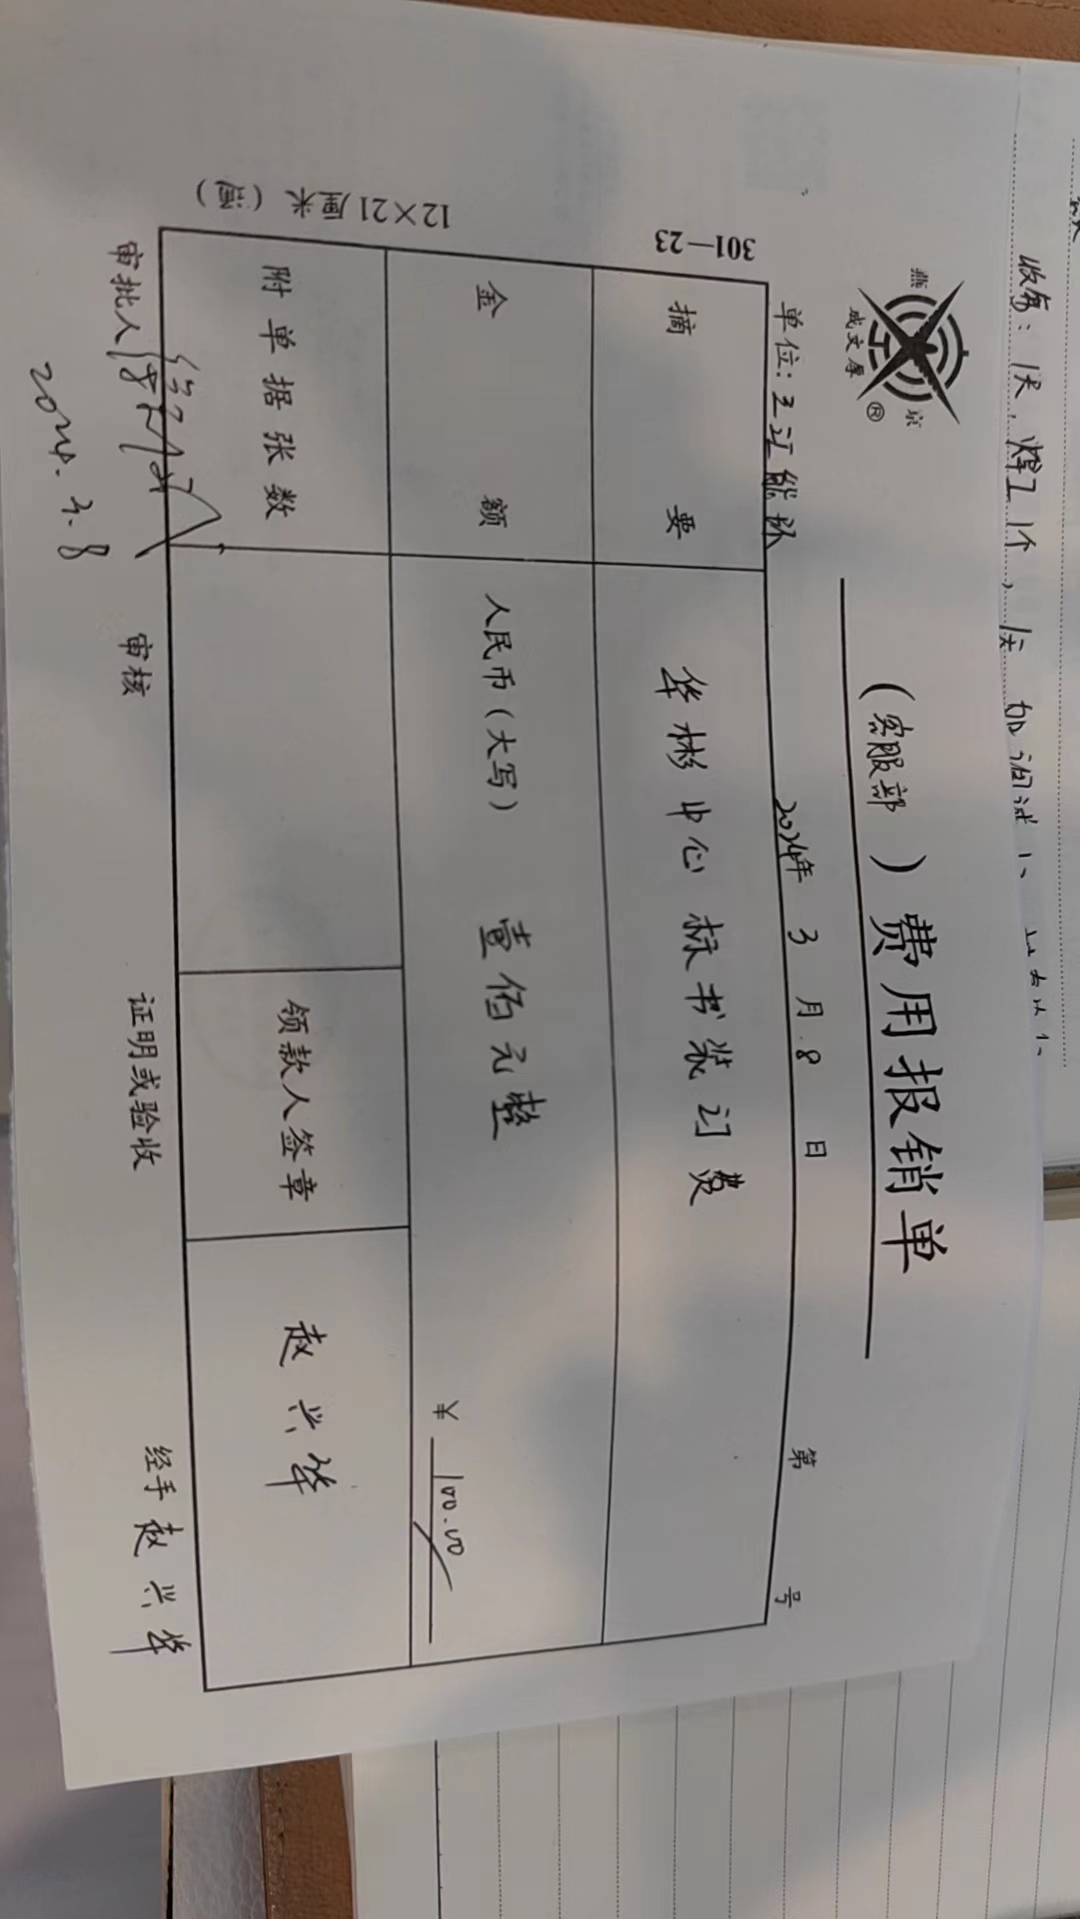 收货: 1天, 焊工1个, 1天
燕京
成文厚
®
(客服部) 费用报销单
单位: 2024年 3 月 8 日 第 号
301—23
摘要 华彬中心标书装订费
金额 人民币(大写) 壹佰元整 ¥ 100.00
附单据张数 领款人签章 赵兴华
12×21厘米
审批人 审核 证明或验收 经手 赵兴华
2024.3.8